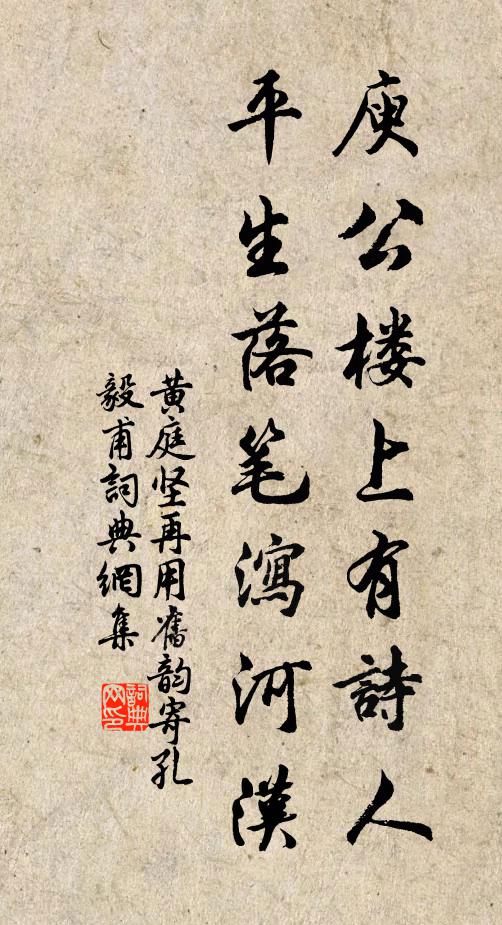 庾公楼上有詩人
平生落笔瀉河漢
黄庭坚再用舊韵寄孔
毅甫詞典網集
詞典网印